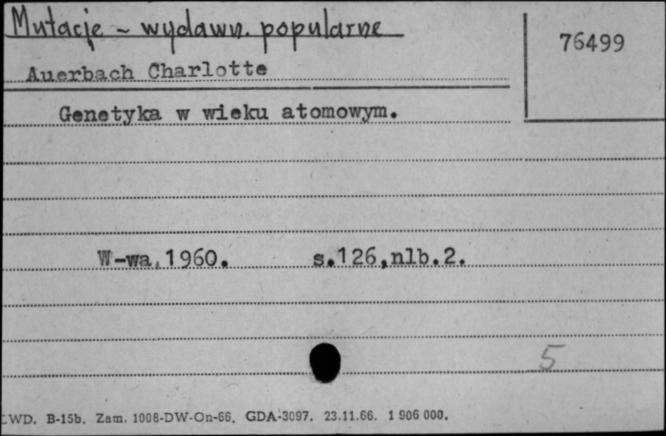 Mutacje ~ wydawn. popularne
76499
Auerbach Charlotte
Genetyka w wieku atomowym.
W-wa, 1960. s.126, nlb.2.
5
WD. B-15b. Zam. 1008-DW-On-66. GDA-3097. 23.11.66. 1 906 000.